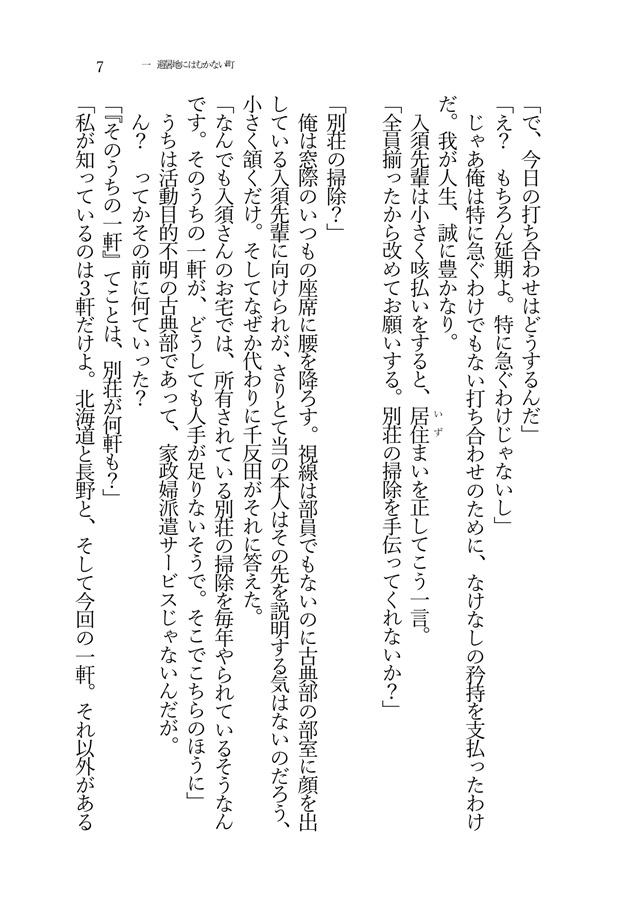 7
一　避暑地にはむかない町
「で、今日の打ち合わせはどうするんだ」
「え？　もちろん延期よ。特に急ぐわけじゃないし」
　じゃあ俺は特に急ぐわけでもない打ち合わせのために、なけなしの矜持を支払ったわけ
だ。我が人生、誠に豊かなり。
　入須先輩は小さく咳払いをすると、居住まいを正してこう一言。
いず
「全員揃ったから改めてお願いする。別荘の掃除を手伝ってくれないか？」
「別荘の掃除？」
　俺は窓際のいつもの座席に腰を降ろす。視線は部員でもないのに古典部の部室に顔を出
している入須先輩に向けられが、さりとて当の本人はその先を説明する気はないのだろう、
小さく頷くだけ。そしてなぜか代わりに千反田がそれに答えた。
「なんでも入須さんのお宅では、所有されている別荘の掃除を毎年やられているそうなん
です。そのうちの一軒が、どうしても人手が足りないそうで。そこでこちらのほうに」
　うちは活動目的不明の古典部であって、家政婦派遣サービスじゃないんだが。
　ん？　ってかその前に何ていった？
「『そのうちの一軒』てことは、別荘が何軒も？」
「私が知っているのは３軒だけよ。北海道と長野と、そして今回の一軒。それ以外がある